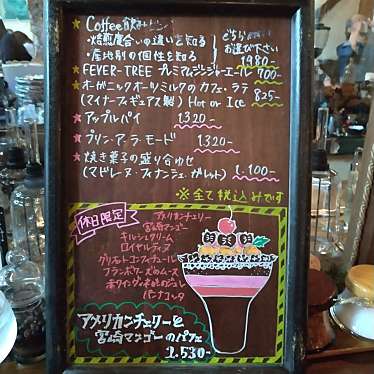 ★ Coffee飲み比べ
・焙煎度合いの違いを知る
・産地別の個性を知る
どちらかお選び下さい
1980-
★ FEVER-TREE プレミアムジンジャーエール 700-
★ オーガニックオーツミルクのカフェ・ラテ
(マイナーフィギュアズ製) Hot or Ice 825-
★ アップルパイ 1320-
★ プリン・ア・ラ・モード 1320-
★ 焼き菓子の盛り合せ
(マドレーヌ・フィナンシェ・ガレット) 1.100-
※全て税込みです
休日限定
アメリカンチェリー
宮崎マンゴー
キルシュクリーム
ロイヤルティーヌ
グリオットコンフィチュール
フランボワーズのムース
パンナコッタ
アメリカンチェリーと
宮崎マンゴーのパフェ
2.530-